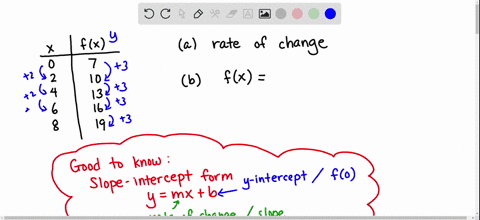 x f(x) y
0 7 +3
+2 2 10 +3
+2 4 13 +3
6 16 +3
8 19
(a) rate of change
(b) f(x) =
Good to know:
Slope-intercept form
y = mx + b ← y-intercept / f(0)
rate of change / slope